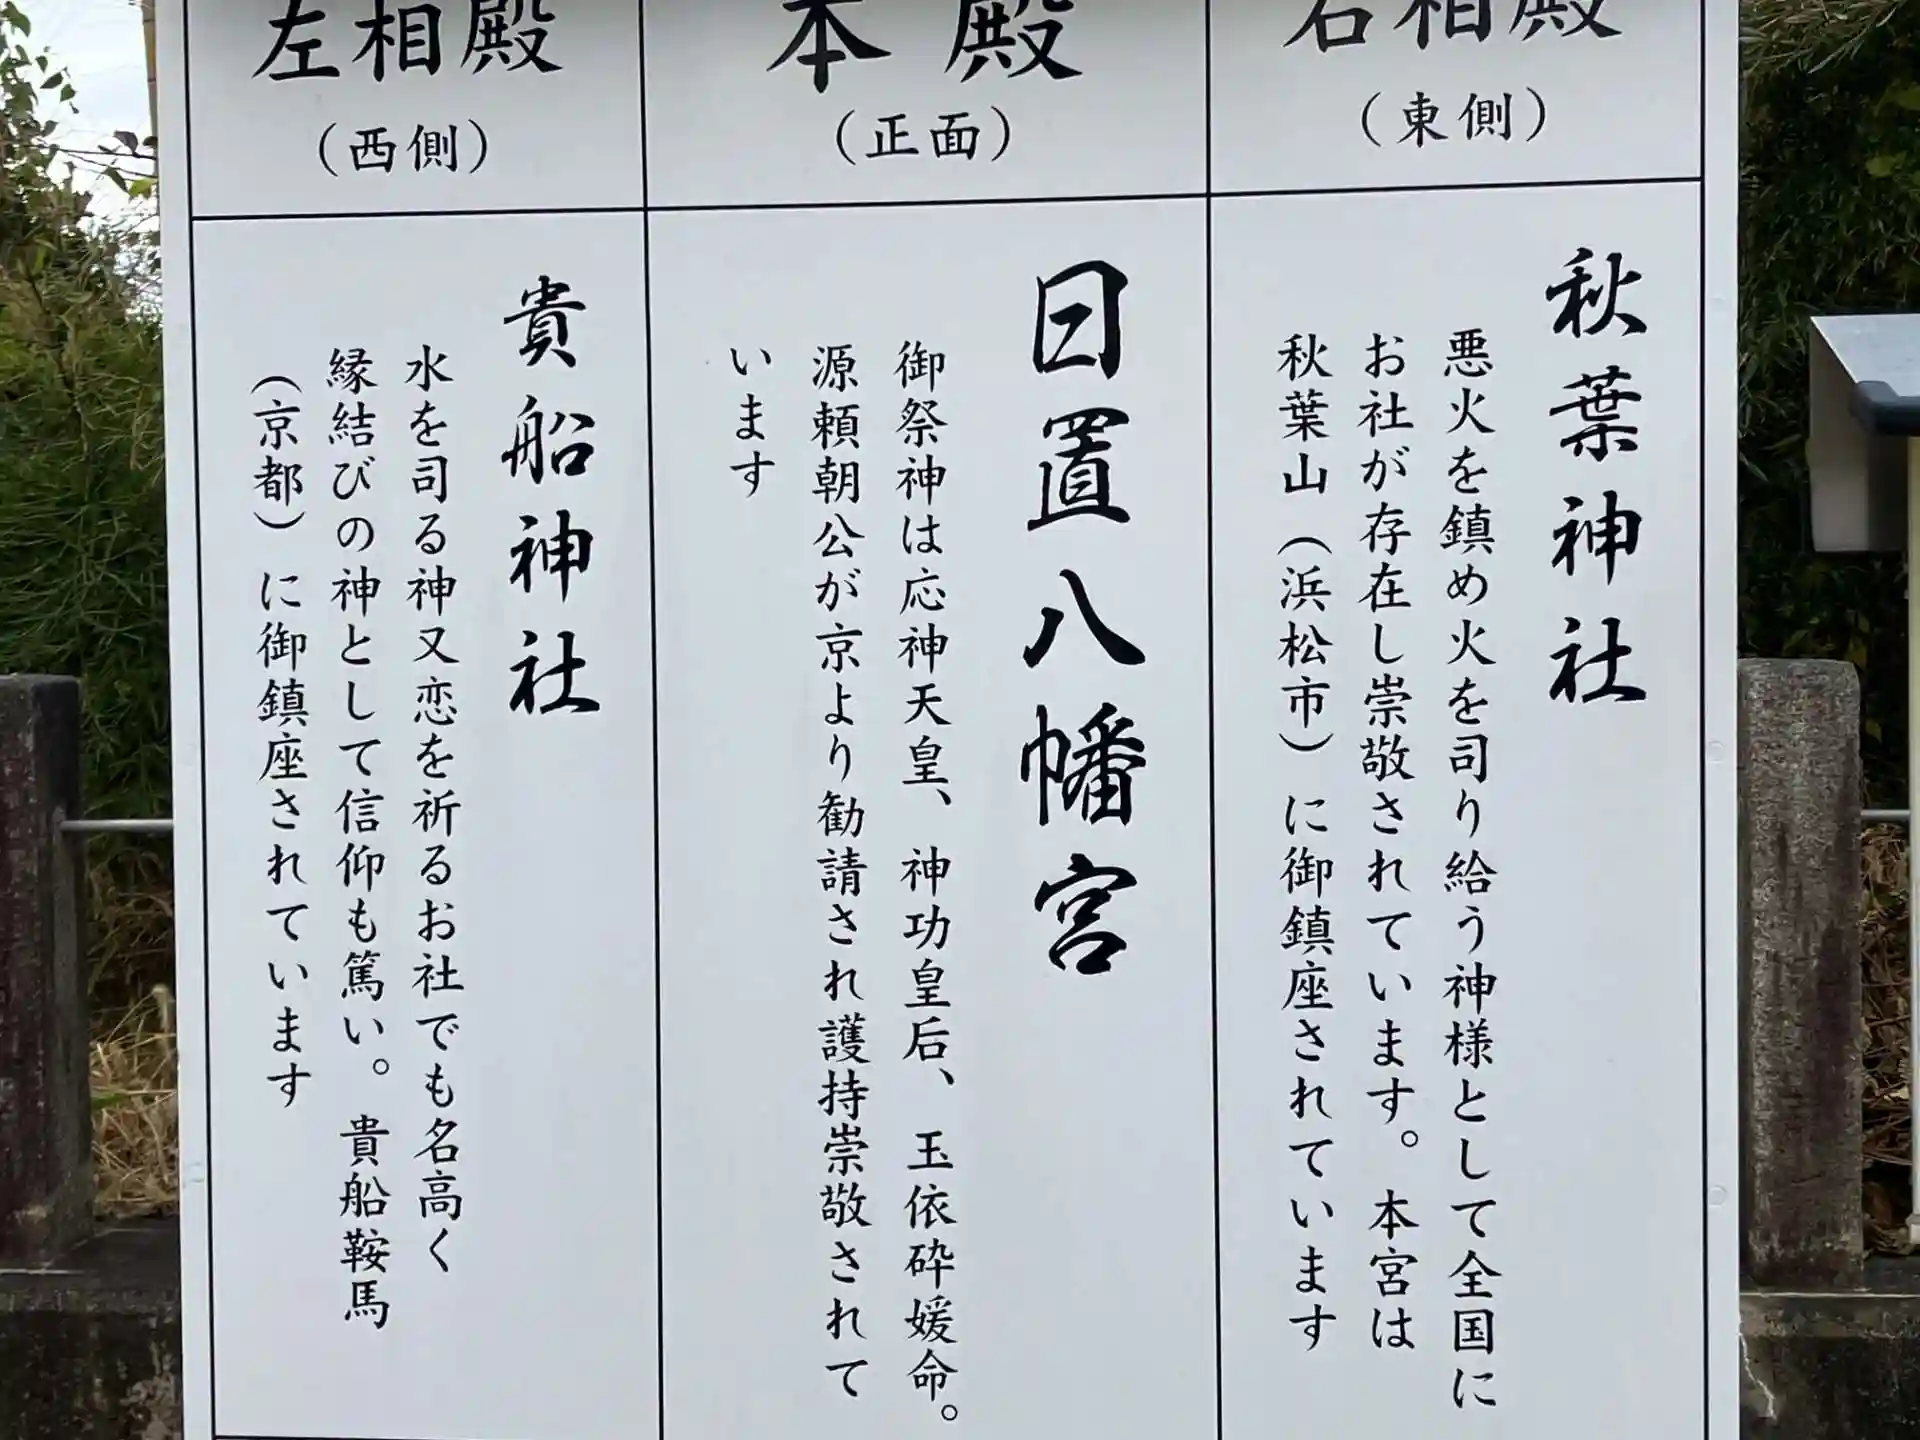 右相殿
（東側）
秋葉神社
悪火を鎮め火を司り給う神様として全国に
お社が存在し崇敬されています。本宮は
秋葉山（浜松市）に御鎮座されています
本殿
（正面）
日置八幡宮
御祭神は応神天皇、神功皇后、玉依砕媛命。
源頼朝公が京より勧請され護持崇敬されて
います
左相殿
（西側）
貴船神社
水を司る神又恋を祈るお社でも名高く
縁結びの神として信仰も篤い。貴船鞍馬
（京都）に御鎮座されています